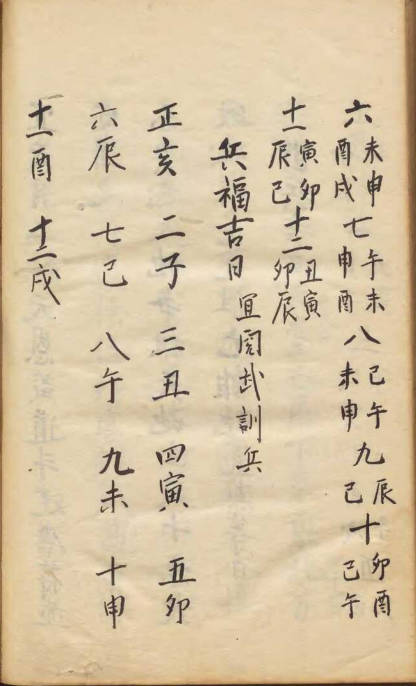 六未申酉戌七午未申酉八己午未申九辰己十卯酉己午
十一寅卯辰己十二丑寅卯辰
兵福吉日 宜閱武訓兵
正亥 二子 三丑 四寅 五卯
六辰 七己 八午 九未 十申
十一酉 十二戌